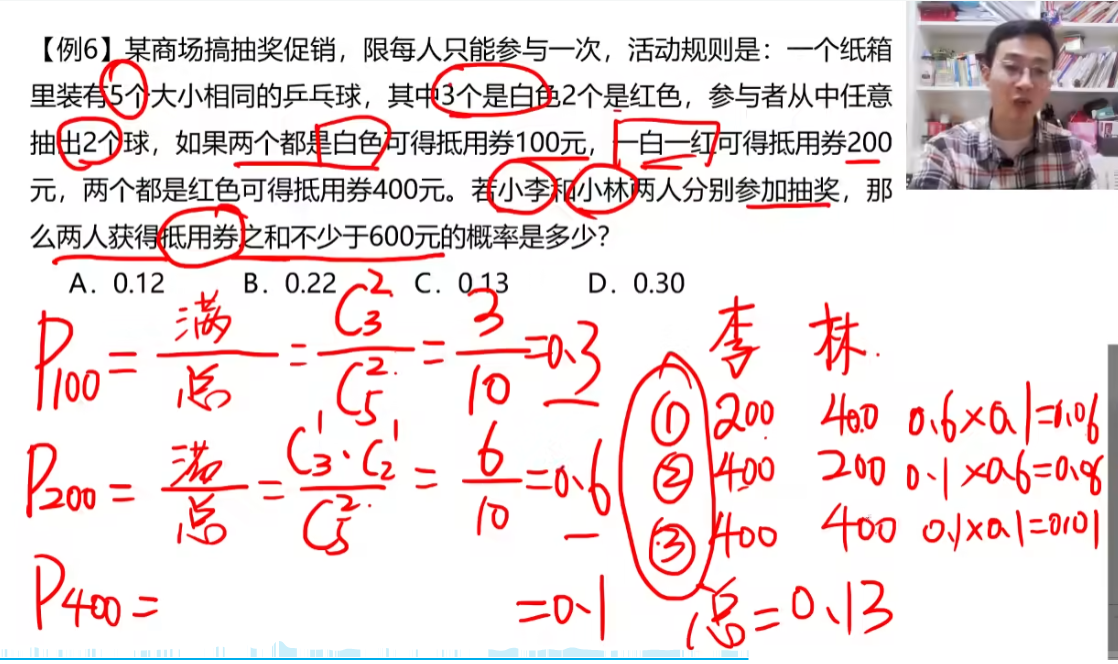 【例6】某商场搞抽奖促销，限每人只能参与一次，活动规则是：一个纸箱
里装有5个大小相同的乒乓球，其中3个是白色2个是红色，参与者从中任意
抽出2个球，如果两个都是白色可得抵用券100元，一白一红可得抵用券200
元，两个都是红色可得抵用券400元。若小李和小林两人分别参加抽奖，那
么两人获得抵用券之和不少于600元的概率是多少？
A．0.12 B．0.22 C．0.13 D．0.30
P100 = 满/总 = C₃²/C₅² = 3/10 = 0.3
P200 = 满/总 = C₃¹·C₂¹/C₅² = 6/10 = 0.6
P400 = = 0.1
李 林
① 200 400 0.6×0.1=0.06
② 400 200 0.1×0.6=0.06
③ 400 400 0.1×0.1=0.01
总=0.13